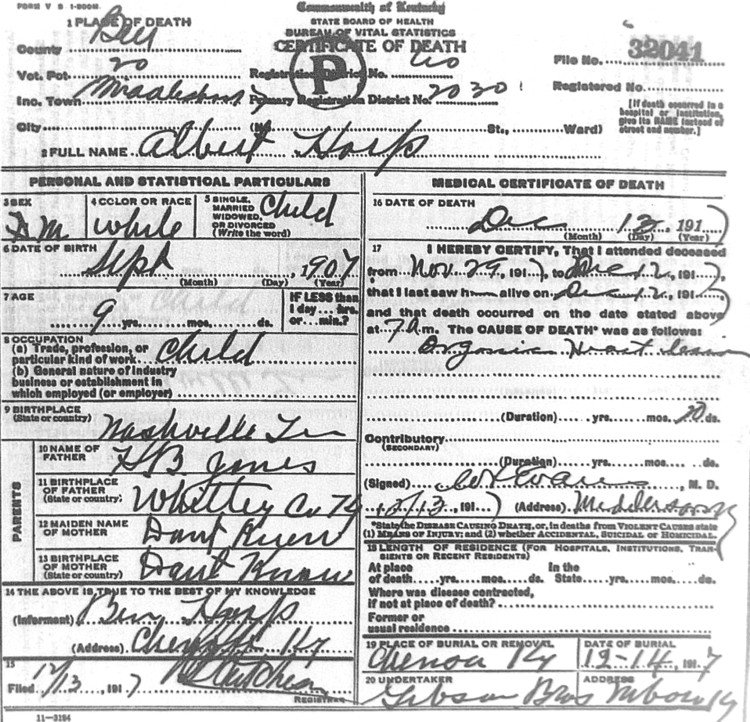 FORM V S 1-200M.
Commonwealth of Kentucky
STATE BOARD OF HEALTH
BUREAU OF VITAL STATISTICS
CERTIFICATE OF DEATH
1 PLACE OF DEATH
County Bell
Vot. Pct. 20
Inc. Town
City (No. St., Ward)
Registration District No. 60
Primary Registration District No. 2030
P
File No. 32041
Registered No.
[If death occurred in a hospital or institution, give its NAME instead of street and number.]
2 FULL NAME Albert Harp
PERSONAL AND STATISTICAL PARTICULARS
3 SEX M
4 COLOR OR RACE White
5 SINGLE, MARRIED WIDOWED, OR DIVORCED (Write the word) Child
6 DATE OF BIRTH
Sept, 1907
(Month) (Day) (Year)
7 AGE
9 yrs. mos. ds.
IF LESS than 1 day hrs. or min.?
8 OCCUPATION
(a) Trade, profession, or particular kind of work Child
(b) General nature of industry
business or establishment in
which employed (or employer)
9 BIRTHPLACE
(State or country) Nashville
PARENTS
10 NAME OF FATHER H.B. Jones
11 BIRTHPLACE OF FATHER (State or country) Whitley Co Ky
12 MAIDEN NAME OF MOTHER Dont Know
13 BIRTHPLACE OF MOTHER (State or country) Dont Know
14 THE ABOVE IS TRUE TO THE BEST OF MY KNOWLEDGE
(Informant) Ben
(Address) Ky
15
Filed 12/13, 1917
REGISTRAR
11-3184
MEDICAL CERTIFICATE OF DEATH
16 DATE OF DEATH
Dec 12, 1917
(Month) (Day) (Year)
17 I HEREBY CERTIFY, That I attended deceased
from Nov. 29, 1917, to Dec 12, 1917,
that I last saw h alive on Dec 12, 1917,
and that death occurred on the date stated above
at 7 a m. The CAUSE OF DEATH* was as follows:
Organic Heart lesion
(Duration) yrs. mos. ds.
Contributory
(SECONDARY)
(Duration) yrs. mos. ds.
(Signed), M. D.
12/13, 1917 (Address)
*State the DISEASE CAUSING DEATH, or, in deaths from VIOLENT CAUSES state
(1) MEANS OF INJURY; and (2) whether ACCIDENTAL, SUICIDAL OR HOMICIDAL.
18 LENGTH OF RESIDENCE (FOR HOSPITALS, INSTITUTIONS, TRANSIENTS OR RECENT RESIDENTS)
At place of death yrs. mos. ds. In the State yrs. mos. ds.
Where was disease contracted,
if not at place of death?
Former or
usual residence
19 PLACE OF BURIAL OR REMOVAL
Chenoa Ky
DATE OF BURIAL
12-14, 1917
20 UNDERTAKER
Gibson Bros
ADDRESS